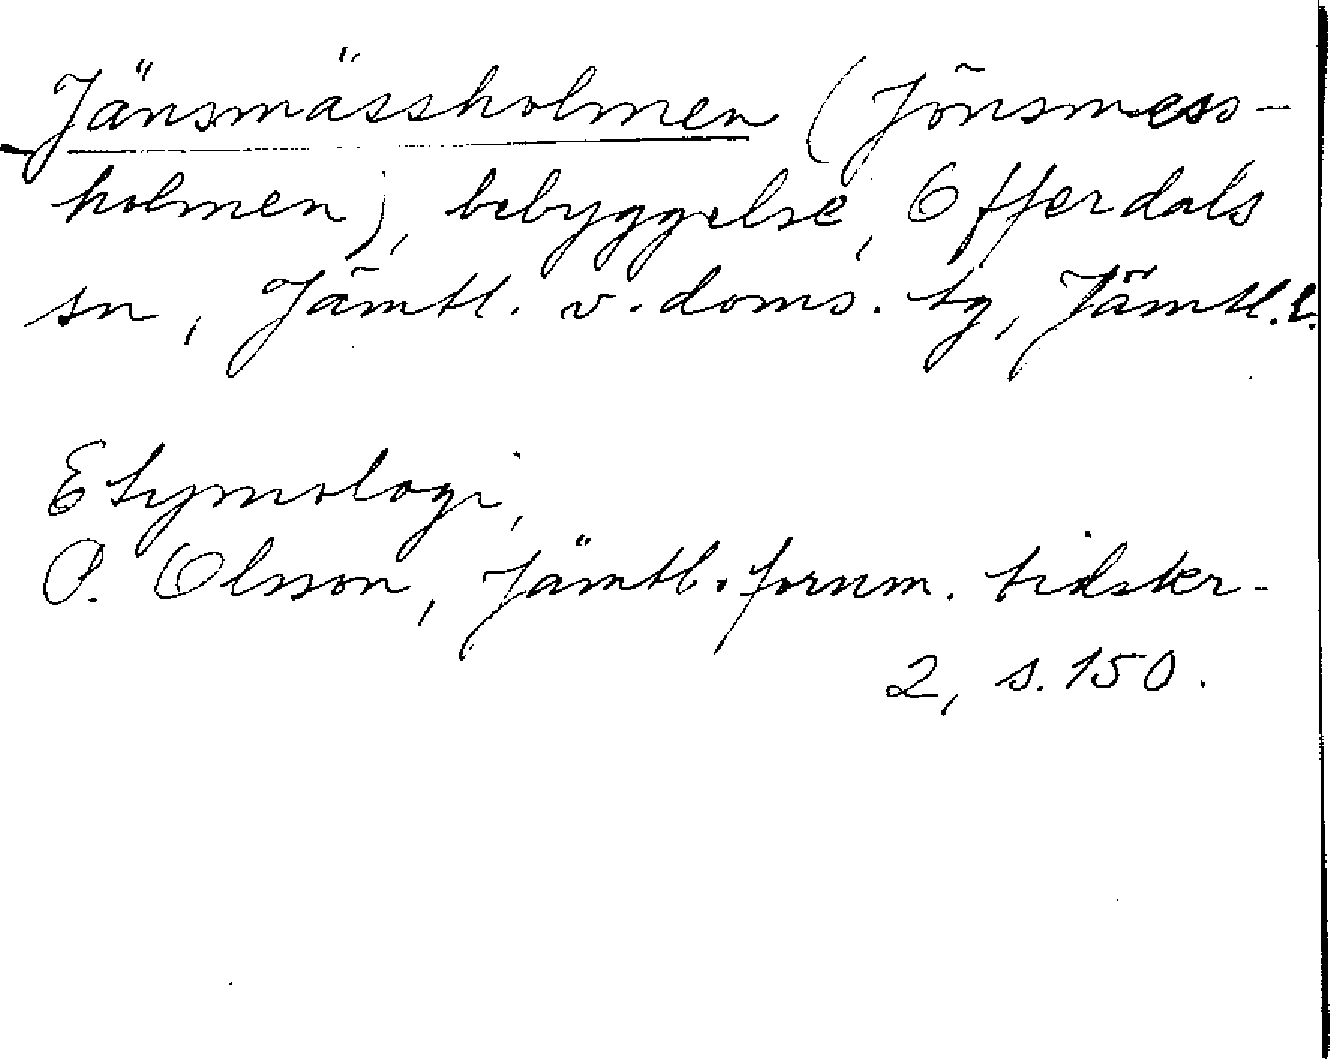 Jänsmässholmen (Jönsmess-
holmen), bebyggelse, Offerdals
sn, Jämtl. v. doms. tg, Jämtl.l.
Etymologi,
P. Olsson, Jämtl. fornm. tidskr.
2, s. 150.